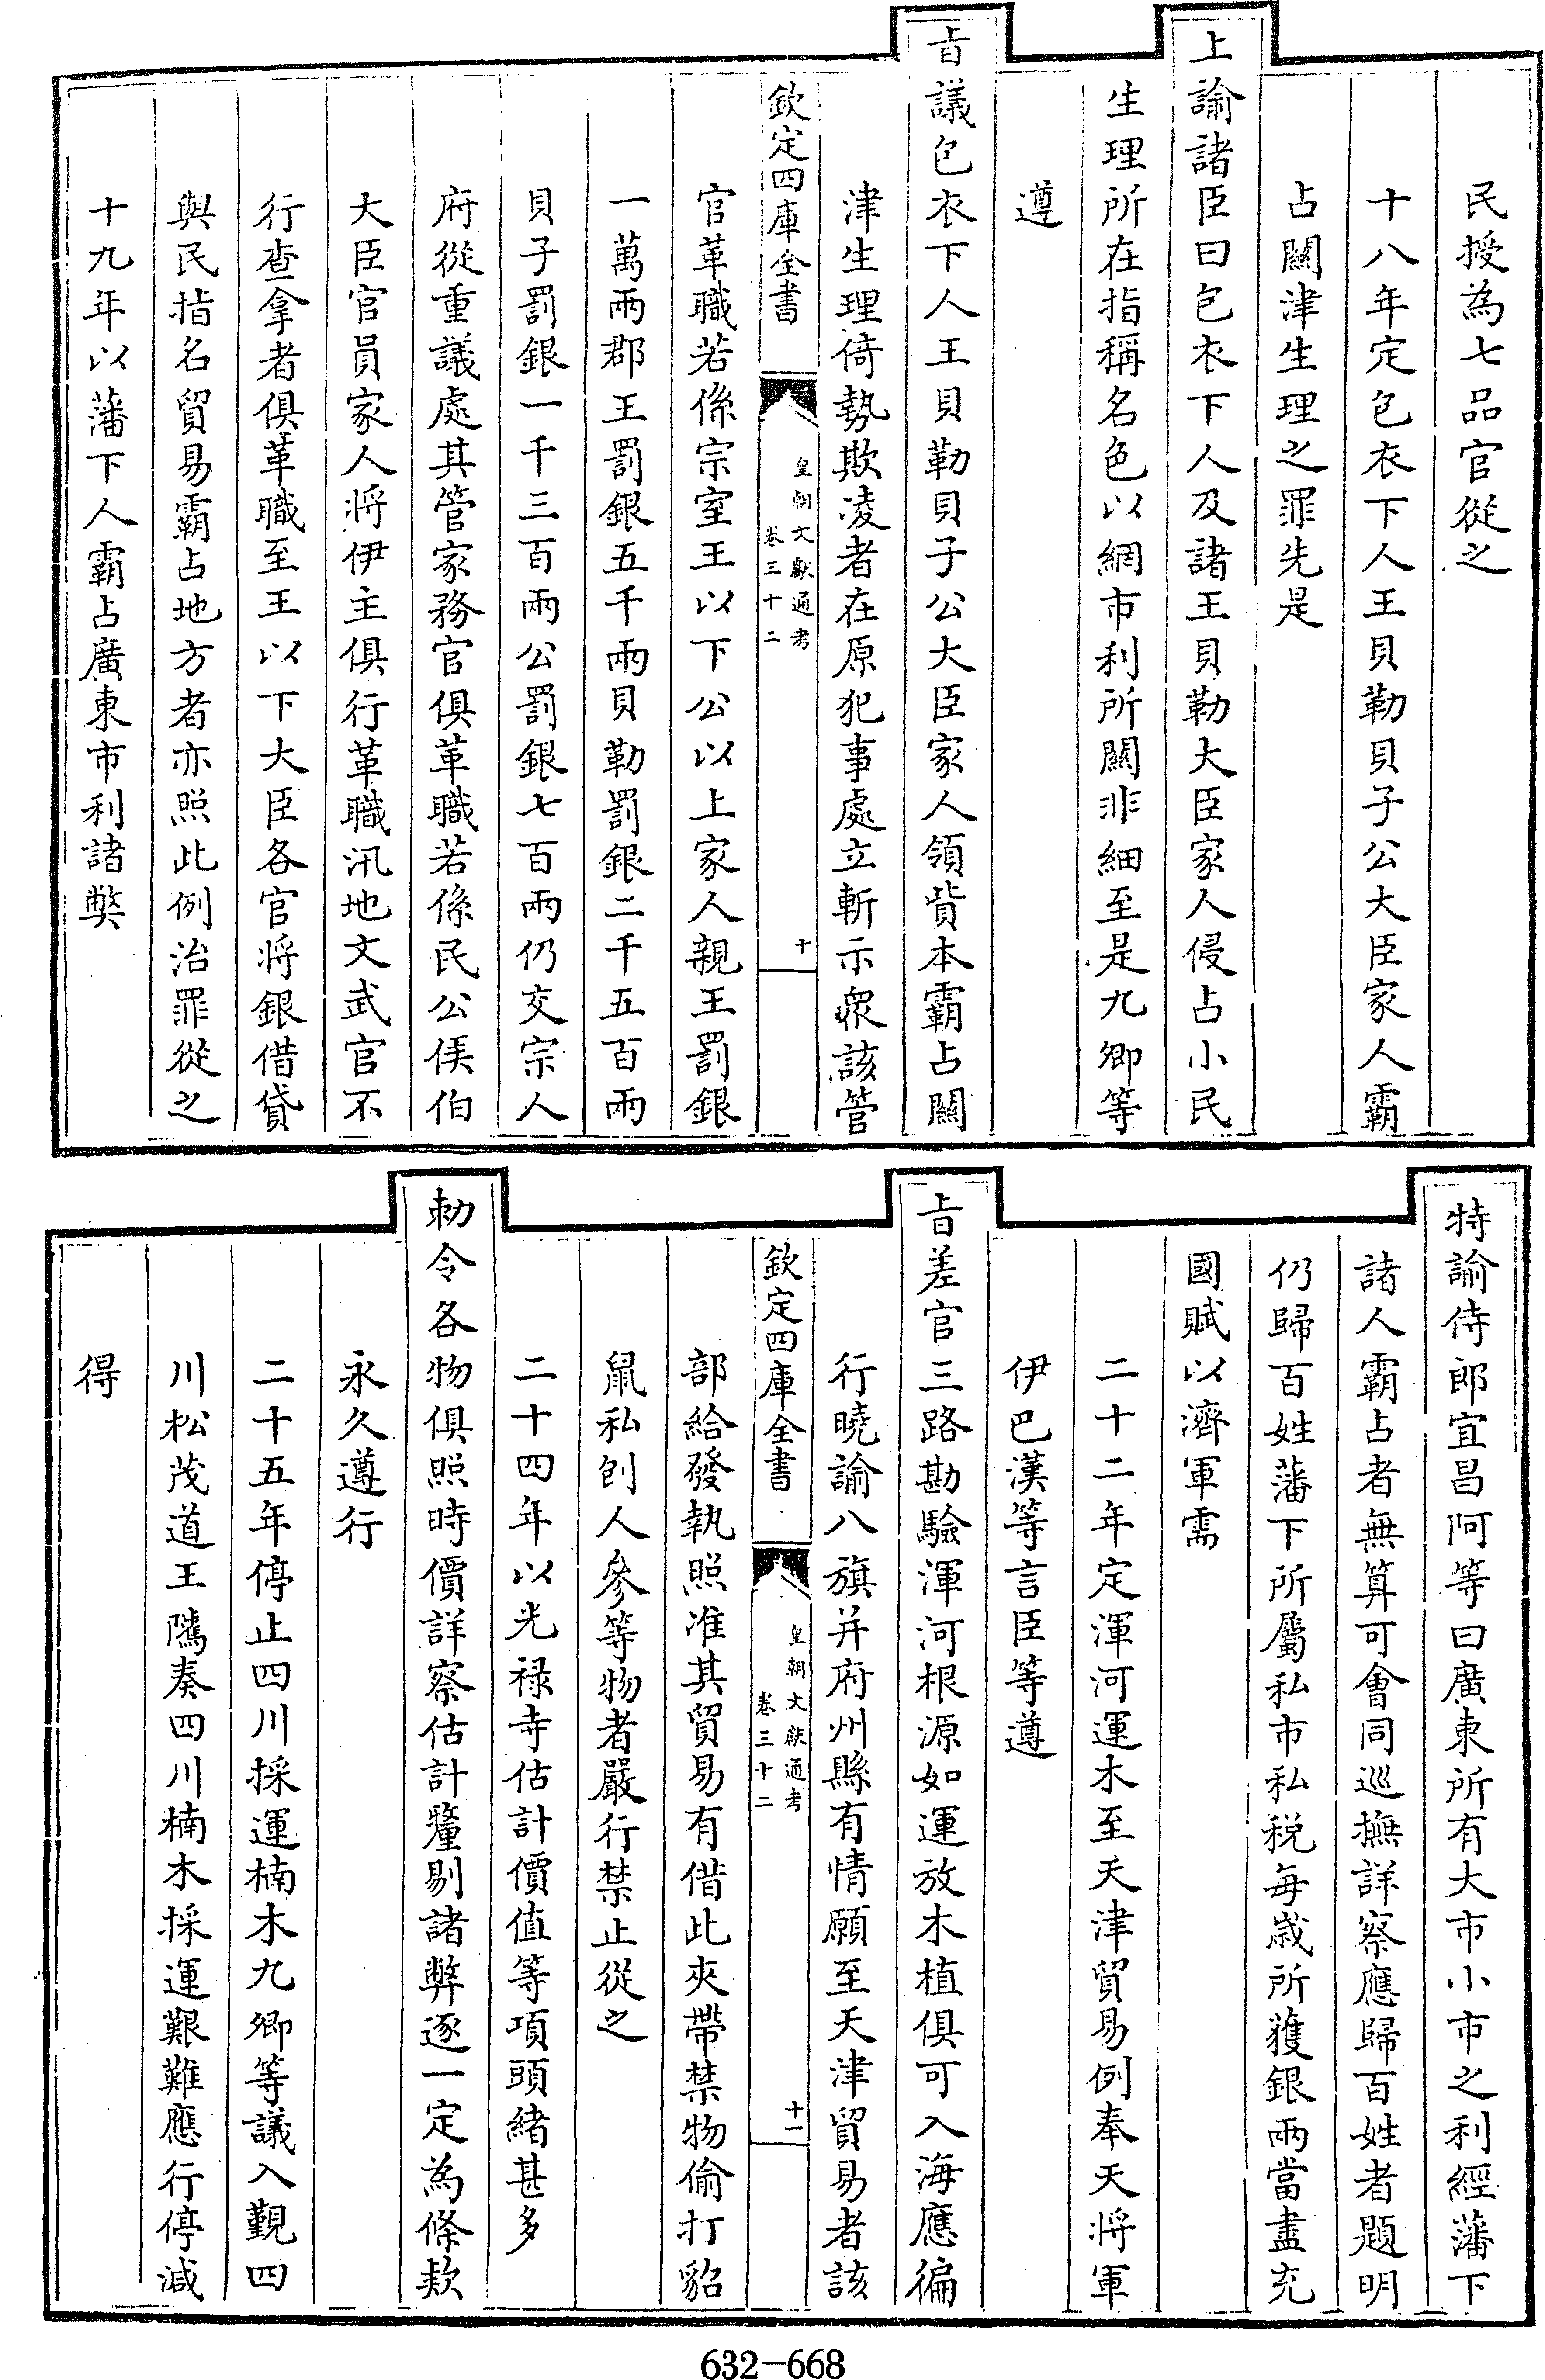 民授為七品官從之
十八年定包衣下人王貝勒貝子公大臣家人霸
占關津生理之罪先是
上諭諸臣曰包衣下人及諸王貝勒大臣家人侵占小民
生理所在指稱名色以網市利所關非細至是九卿等
遵
旨議包衣下人王貝勒貝子公大臣家人領貲本霸占關
津生理倚勢欺凌者在原犯事處立斬示衆該管
欽定四庫全書
皇朝文獻通考
卷三十二
十
官革職若係宗室王以下公以上家人親王罰銀
一萬兩郡王罰銀五千兩貝勒罰銀二千五百兩
貝子罰銀一千三百兩公罰銀七百兩仍交宗人
府從重議處其管家務官俱革職若係民公侯伯
大臣官員家人將伊主俱行革職汛地文武官不
行查拿者俱革職至王以下大臣各官將銀借貸
與民指名貿易霸占地方者亦照此例治罪從之
十九年以藩下人霸占廣東市利諸弊
特諭侍郎宜昌阿等曰廣東所有大市小市之利經藩下
諸人霸占者無算可會同巡撫詳察應歸百姓者題明
仍歸百姓藩下所屬私市私稅每歲所獲銀兩當盡充
國賦以濟軍需
二十二年定渾河運木至天津貿易例奉天將軍
伊巴漢等言臣等遵
旨差官三路勘驗渾河根源如運放木植俱可入海應徧
行曉諭八旗并府州縣有情願至天津貿易者該
欽定四庫全書
皇朝文獻通考
卷三十二
十一
部給發執照准其貿易有借此夾帶禁物偷打貂
鼠私刨人參等物者嚴行禁止從之
二十四年以光禄寺估計價值等項頭緒甚多
勅令各物俱照時價詳察估計釐剔諸弊逐一定為條款
永久遵行
二十五年停止四川採運楠木九卿等議入覲四
川松茂道王隲奏四川楠木採運艱難應行停減
得
632-668